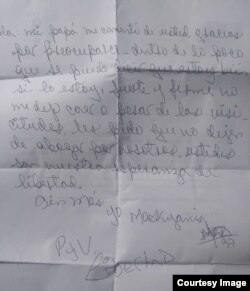 mi papá me comentó de usted, gracias
por preocuparse. dentro de lo poco
que se puede decir que estoy
si lo estoy, fuerte y firme no
me dejo caer a pesar de las visi
citudes, les pido que no dejen
de abogar por nosotros, ustedes
son nuestra esperanza de
libertad.
Sin más
yo
PyV
Libertad
Courtesy Image